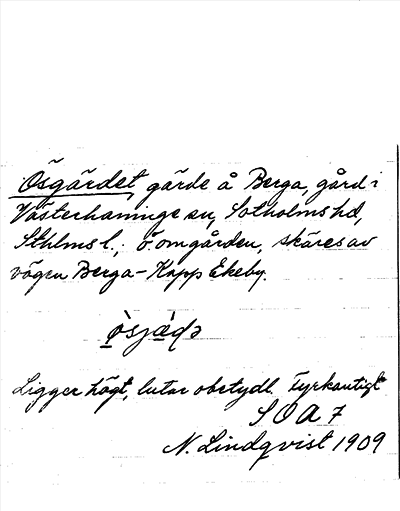 Ösgärdet, gärde å Berga, gård i
Västerhaninge sn, Sotholms hd,
Sthlms l.; ö. om gården, skäres av
vägen Berga-Kapp Ekeby.
ò̱sjæ̀ḍə
Ligger högt, lutar obetydl. Fyrkantigt
S O A 7
N. Lindqvist 1909